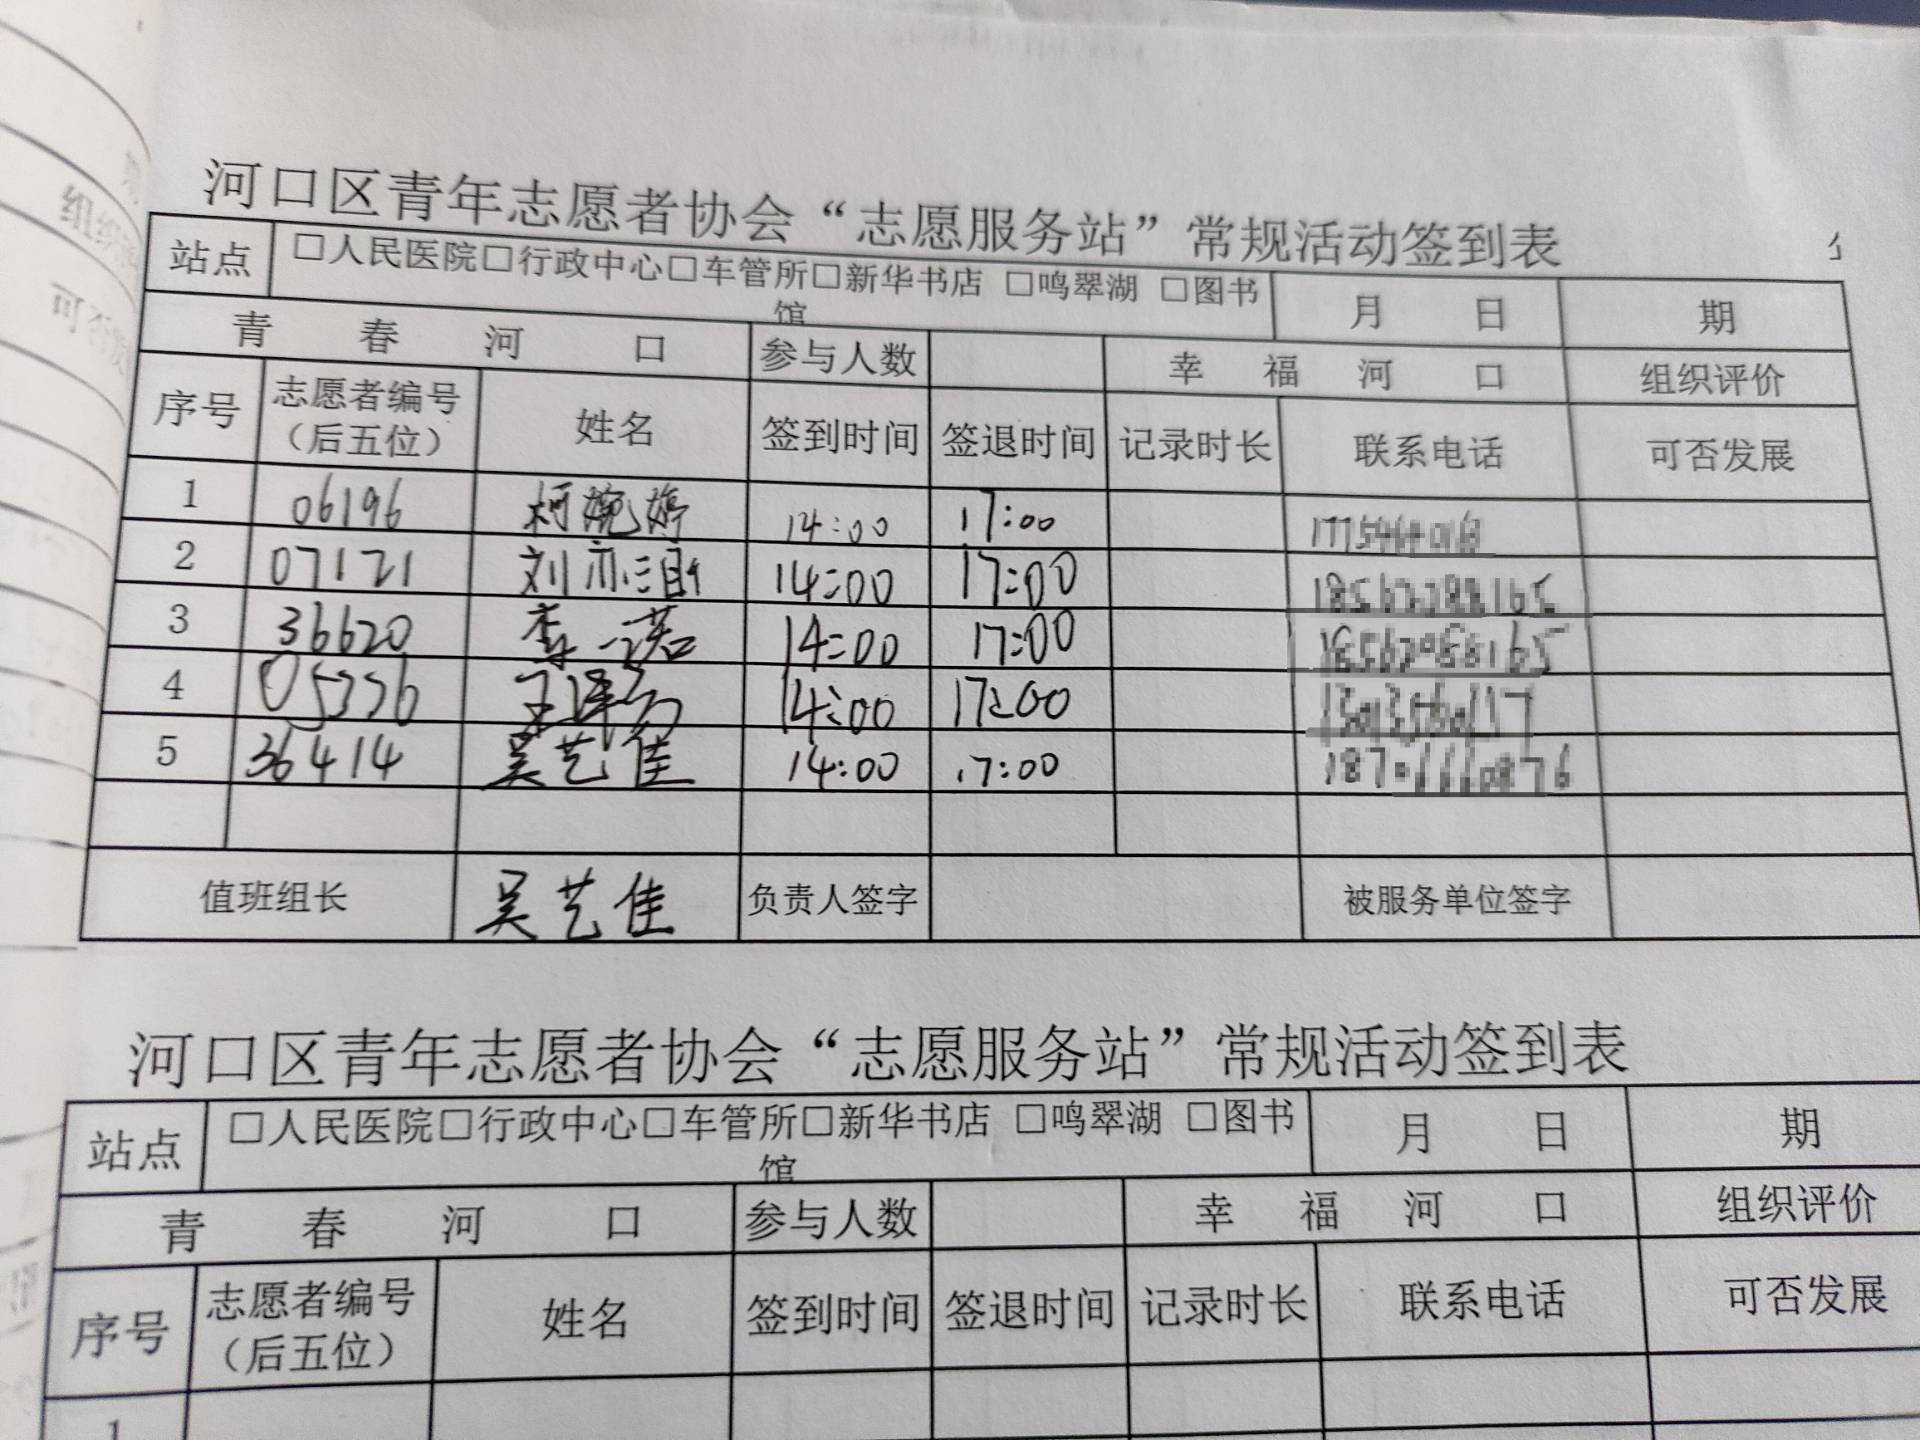 河口区青年志愿者协会“志愿服务站”常规活动签到表
站点 □人民医院□行政中心□车管所□新华书店 □鸣翠湖 □图书馆 月 日 期
青 春 河 口 参与人数 幸 福 河 口 组织评价
序号 志愿者编号（后五位） 姓名 签到时间 签退时间 记录时长 联系电话 可否发展
1 06196 柯婉婷 14:00 17:00
2 07121 刘 14:00 17:00
3 36620 李一诺 14:00 17:00
4 14:00 17:00
5 36414 吴艺佳 14:00 17:00
值班组长 吴艺佳 负责人签字 被服务单位签字
河口区青年志愿者协会“志愿服务站”常规活动签到表
站点 □人民医院□行政中心□车管所□新华书店 □鸣翠湖 □图书馆 月 日 期
青 春 河 口 参与人数 幸 福 河 口 组织评价
序号 志愿者编号（后五位） 姓名 签到时间 签退时间 记录时长 联系电话 可否发展
1